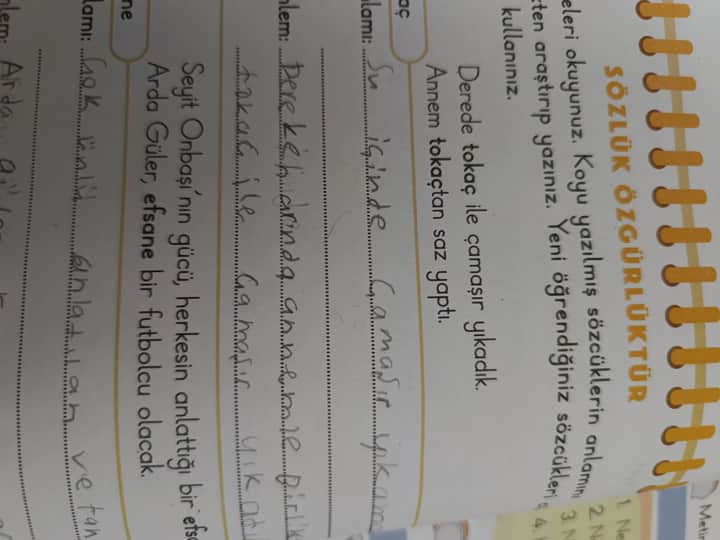 SÖZLÜK ÖZGÜRLÜKTÜR
eleri okuyunuz. Koyu yazılmış sözcüklerin anlamını
kten araştırıp yazınız. Yeni öğrendiğiniz sözcükleri
kullanınız.
aç
Derede tokaç ile çamaşır yıkadık.
Annem tokaçtan saz yaptı.
lamı: Su içinde Çamaşır yıkam
nlem: Dere kenarında annemle birlik
tokaç ile Çamaşır yıkadı
ne
Seyit Onbaşı'nın gücü, herkesin anlattığı bir efsa
Arda Güler, efsane bir futbolcu olacak.
lamı: Çok ünlü anlatılan ve tan
nlem: Arda
Metin
1. Ne
2. Ne
3. N
4.